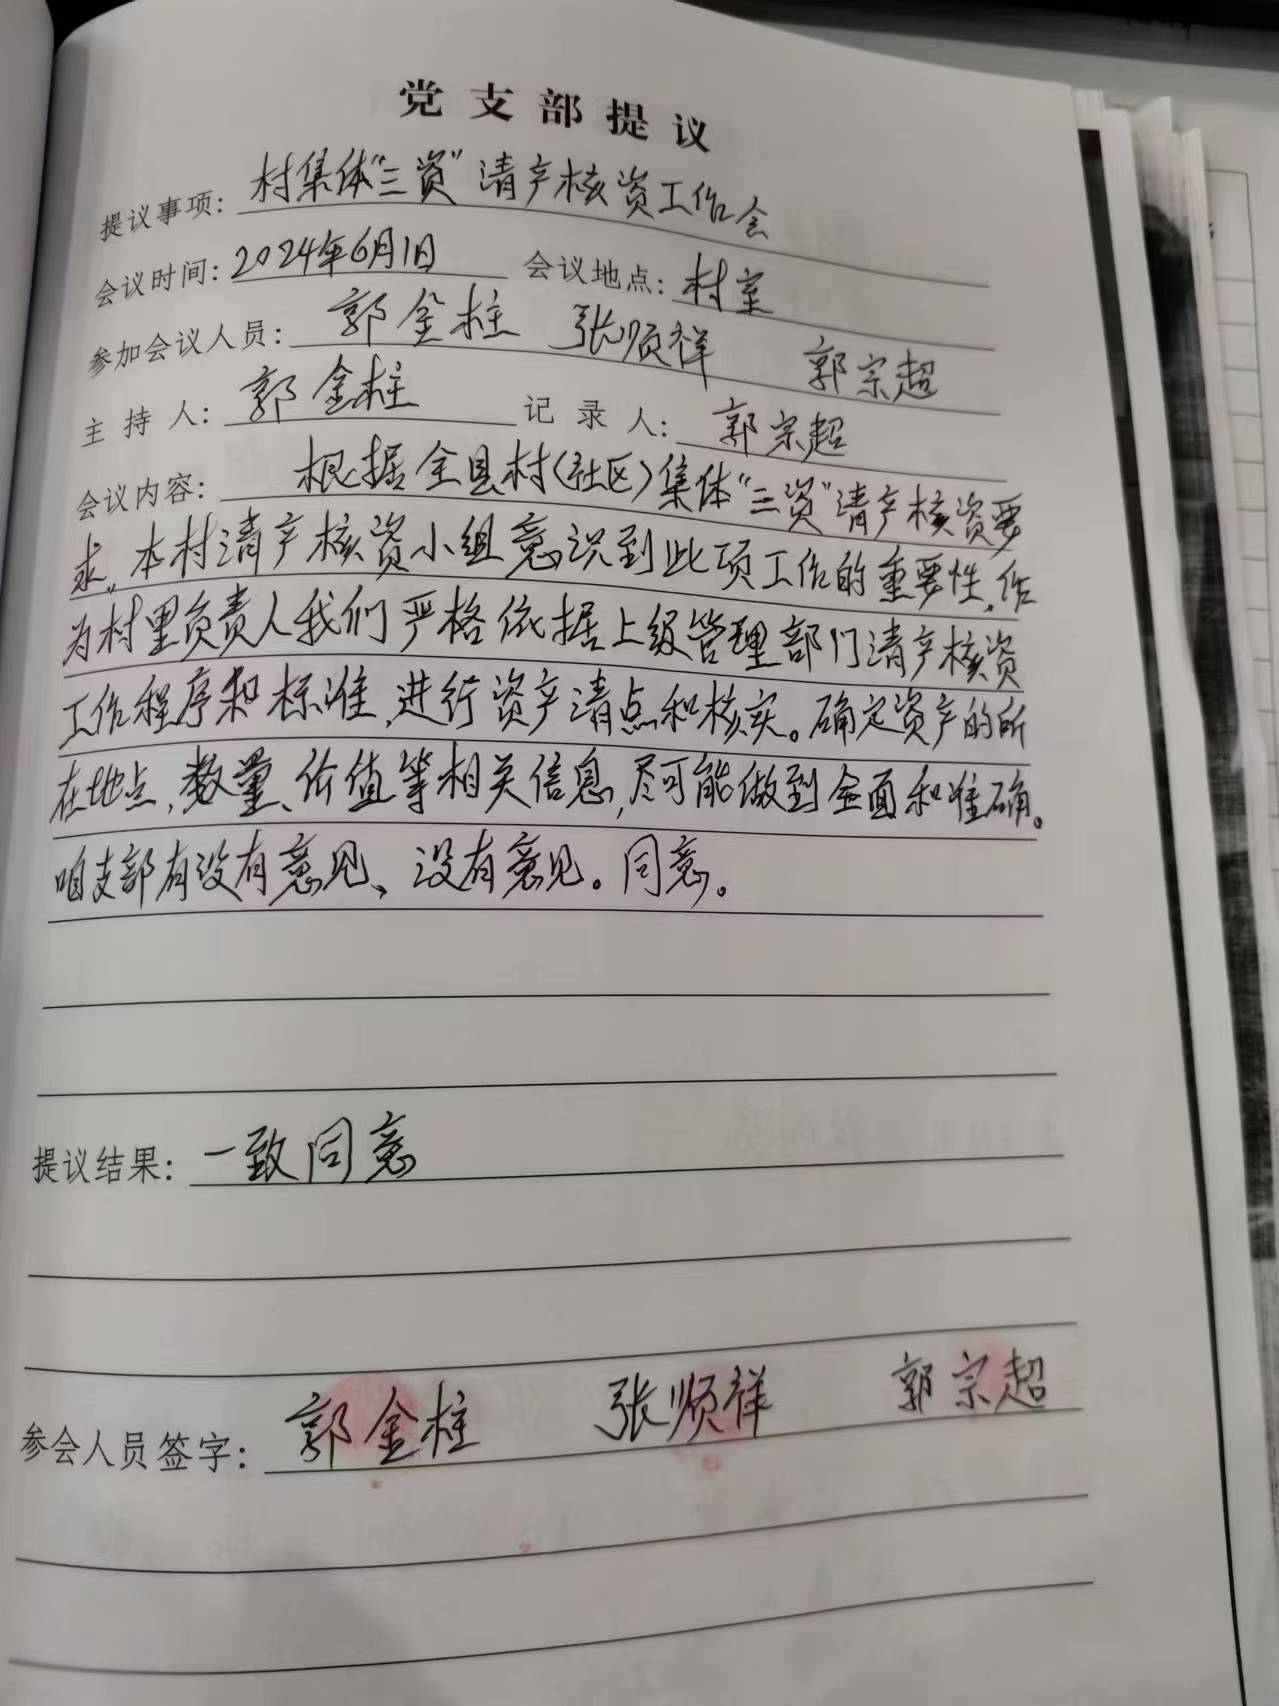 党支部提议
提议事项: 村集体"三资"清产核资工作会
会议时间: 2024年6月1日 会议地点: 村室
参加会议人员: 郭金柱 张顺祥 郭宗超
主持人: 郭金柱 记录人: 郭宗超
会议内容: 根据全县村(社区)集体"三资"清产核资要
求,本村清产核资小组意识到此项工作的重要性,作
为村里负责人我们严格依据上级管理部门清产核资
工作程序和标准,进行资产清点和核实。确定资产的所
在地点,数量、价值等相关信息,尽可能做到全面和准确。
咱支部有没有意见、没有意见。同意。
提议结果: 一致同意
参会人员签字: 郭金柱 张顺祥 郭宗超